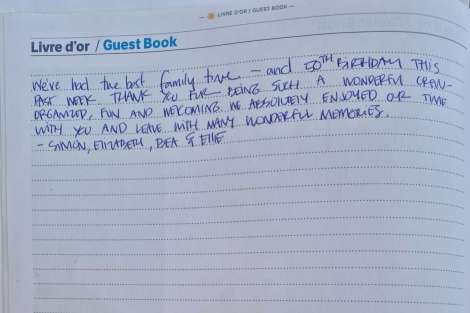 LIVRE D'OR / GUEST BOOK
Livre d'or / Guest Book
We've had the best family time - and 50TH BIRTHDAY THIS
PAST WEEK. THANK YOU FOR BEING SUCH A WONDERFUL CREW-
ORGANIZED, FUN AND WELCOMING. WE ABSOLUTELY ENJOYED OUR TIME
WITH YOU AND LEAVE WITH MANY WONDERFUL MEMORIES.
- SIMON, ELIZABETH, BEA & ELLIE